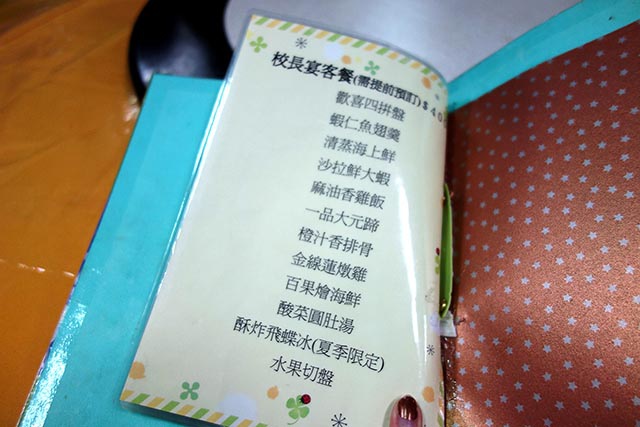 校長宴客餐(需提前預訂)$40
歡喜四拼盤
蝦仁魚翅羹
清蒸海上鮮
沙拉鮮大蝦
麻油香雞飯
一品大元蹄
橙汁香排骨
金線蓮燉雞
百果燴海鮮
酸菜圓肚湯
酥炸飛蝶冰(夏季限定)
水果切盤